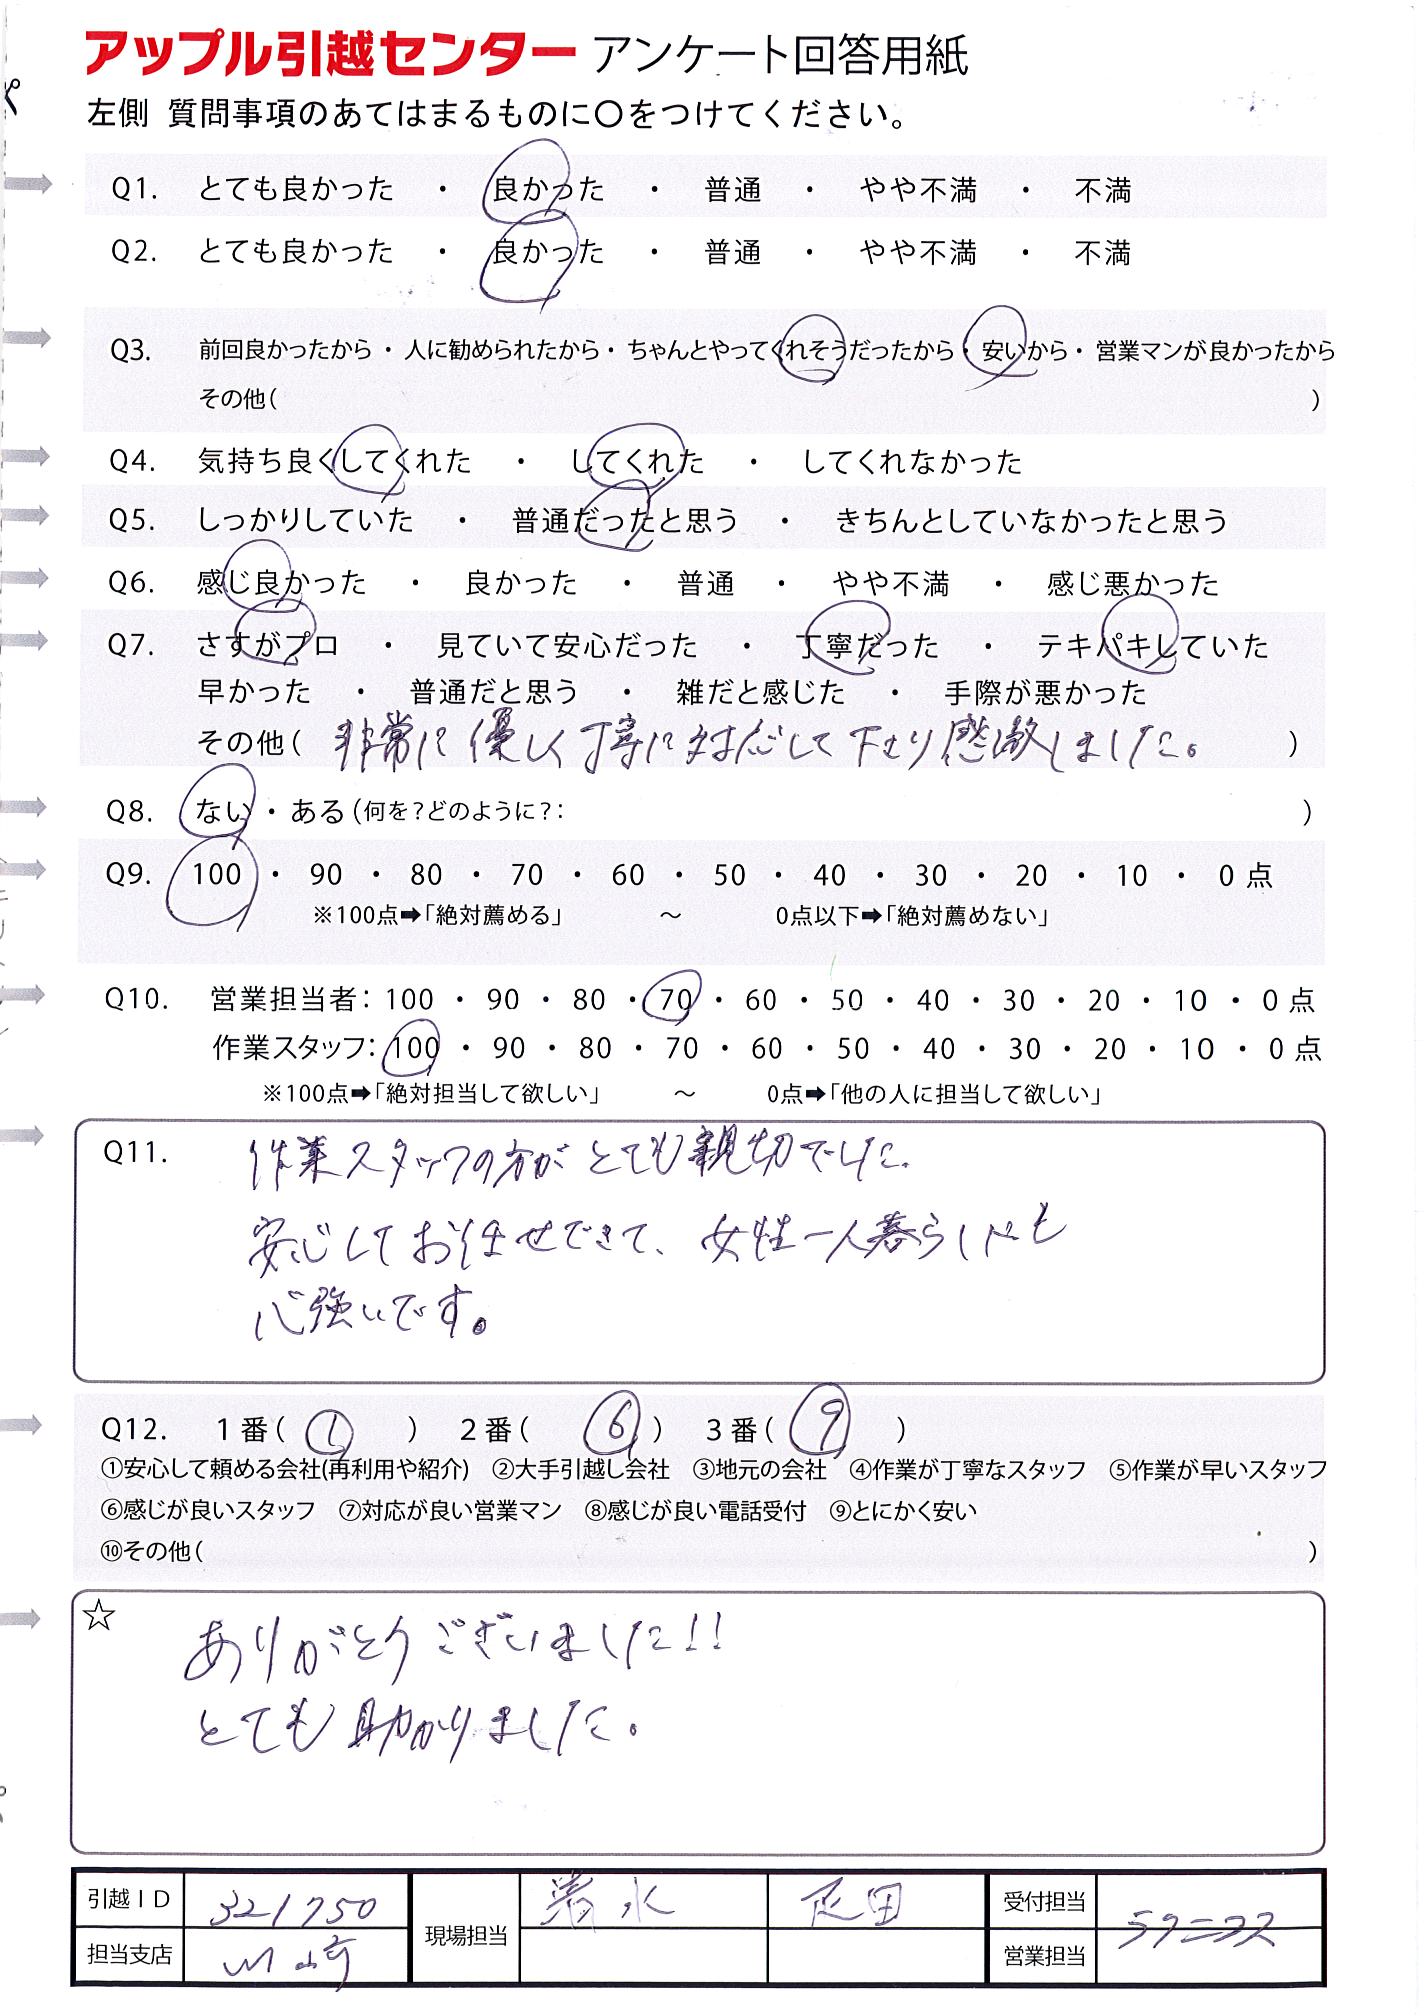 アップル引越センター アンケート回答用紙
左側 質問事項のあてはまるものに〇をつけてください。
Q1. とても良かった ・ 良かった ・ 普通 ・ やや不満 ・ 不満
Q2. とても良かった ・ 良かった ・ 普通 ・ やや不満 ・ 不満
Q3. 前回良かったから・人に勧められたから・ちゃんとやってくれそうだったから・安いから・営業マンが良かったから
その他( )
Q4. 気持ち良くしてくれた ・ してくれた ・ してくれなかった
Q5. しっかりしていた ・ 普通だったと思う ・ きちんとしていなかったと思う
Q6. 感じ良かった ・ 良かった ・ 普通 ・ やや不満 ・ 感じ悪かった
Q7. さすがプロ ・ 見ていて安心だった ・ 丁寧だった ・ テキパキしていた
早かった ・ 普通だと思う ・ 雑だと感じた ・ 手際が悪かった
その他( 非常に優しく丁寧に対応して下さり感激しました。 )
Q8. ない・ある(何を?どのように?: )
Q9. 100 ・ 90 ・ 80 ・ 70 ・ 60 ・ 50 ・ 40 ・ 30 ・ 20 ・ 10 ・ 0 点
※100点➡「絶対薦める」 ～ 0点以下➡「絶対薦めない」
Q10. 営業担当者: 100 ・ 90 ・ 80 ・ 70 ・ 60 ・ 50 ・ 40 ・ 30 ・ 20 ・ 10 ・ 0 点
作業スタッフ: 100 ・ 90 ・ 80 ・ 70 ・ 60 ・ 50 ・ 40 ・ 30 ・ 20 ・ 10 ・ 0 点
※100点➡「絶対担当して欲しい」 ～ 0点➡「他の人に担当して欲しい」
Q11. 作業スタッフの方がとても親切でした。
安心してお任せできて、女性一人暮らしにも
心強いです。
Q12. 1番( 1 ) 2番( 6 ) 3番( 9 )
①安心して頼める会社(再利用や紹介) ②大手引越し会社 ③地元の会社 ④作業が丁寧なスタッフ ⑤作業が早いスタッフ
⑥感じが良いスタッフ ⑦対応が良い営業マン ⑧感じが良い電話受付 ⑨とにかく安い
⑩その他( )
☆ ありがとうございました!!
とても助かりました。
引越ID 321750 現場担当 水 田 受付担当
担当支店 川崎 営業担当